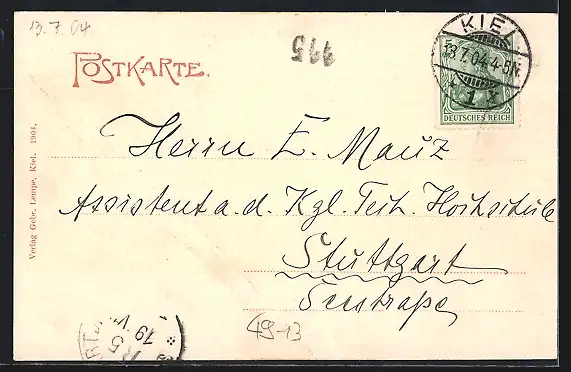 13.7.04
995
POSTKARTE.
KIEL
13.7.04.4-5N.
1 *
DEUTSCHES REICH
Herrn E. Mauz
Assistent a. d. Kgl. Tech. Hochschule
Stuttgart
Seestraße
49-13
Verlag Gebr. Lempe, Kiel. 1901.